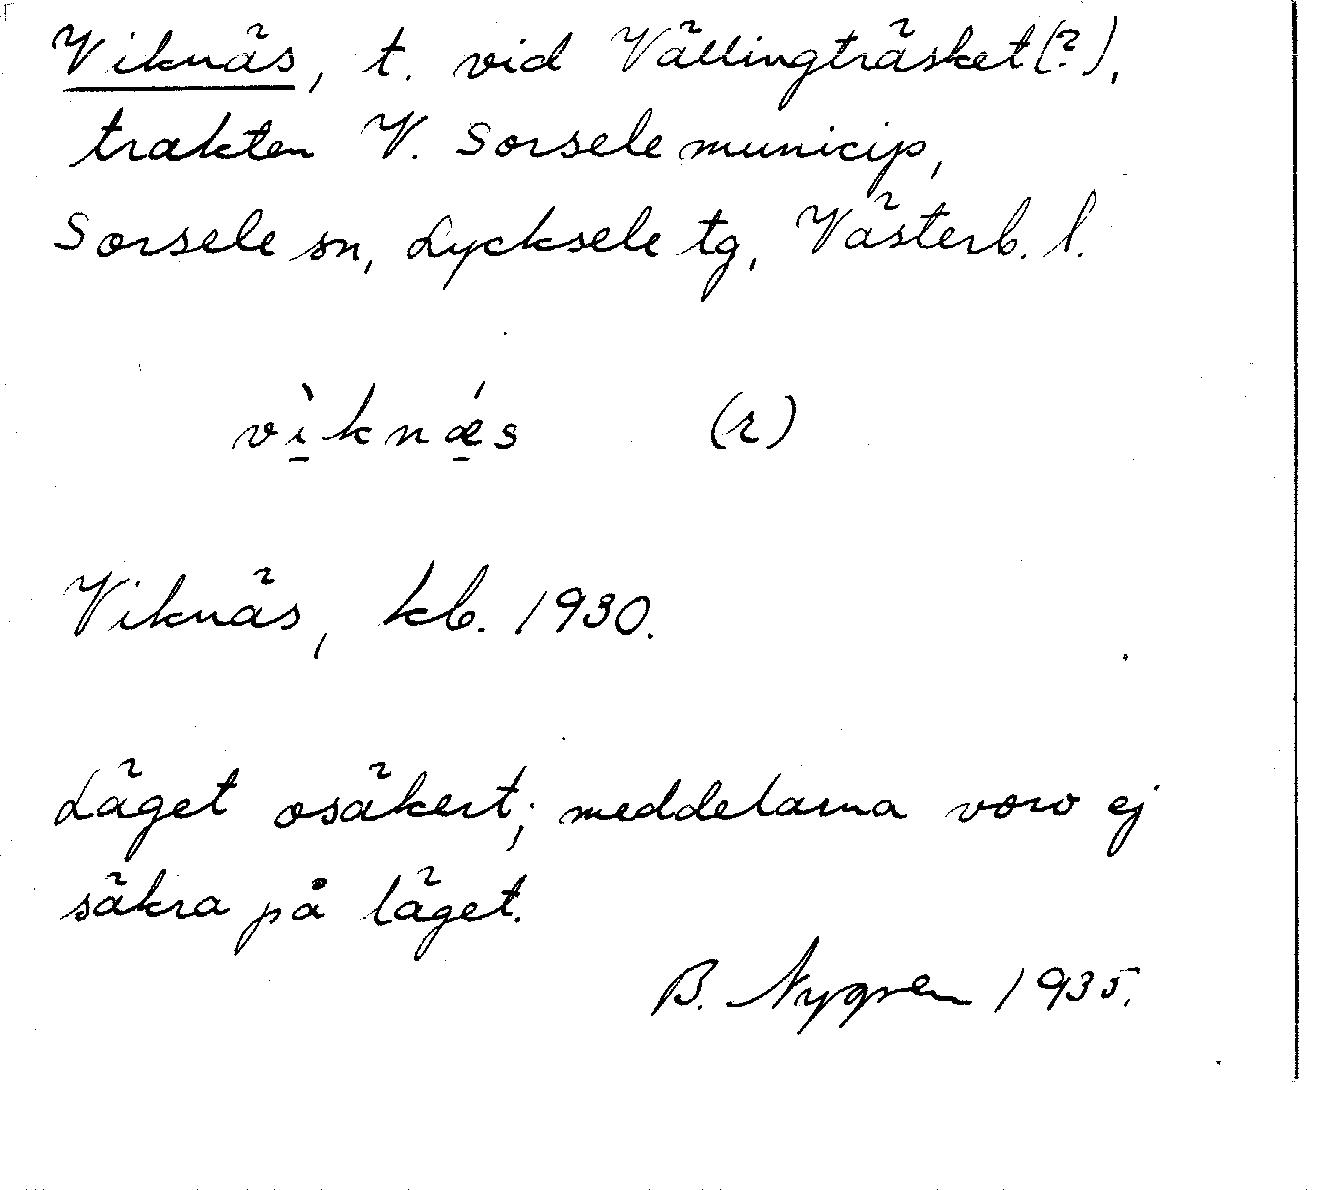 Viknäs, t. vid Vällingträsket (?),
trakten V. Sorsele municip,
Sorsele sn, Lycksele tg, Västerb. l.
vì̱knǽ̱s (r)
Viknäs, kb. 1930.
Läget osäkert; meddelarna voro ej
säkra på läget.
B. Nygren 1935.